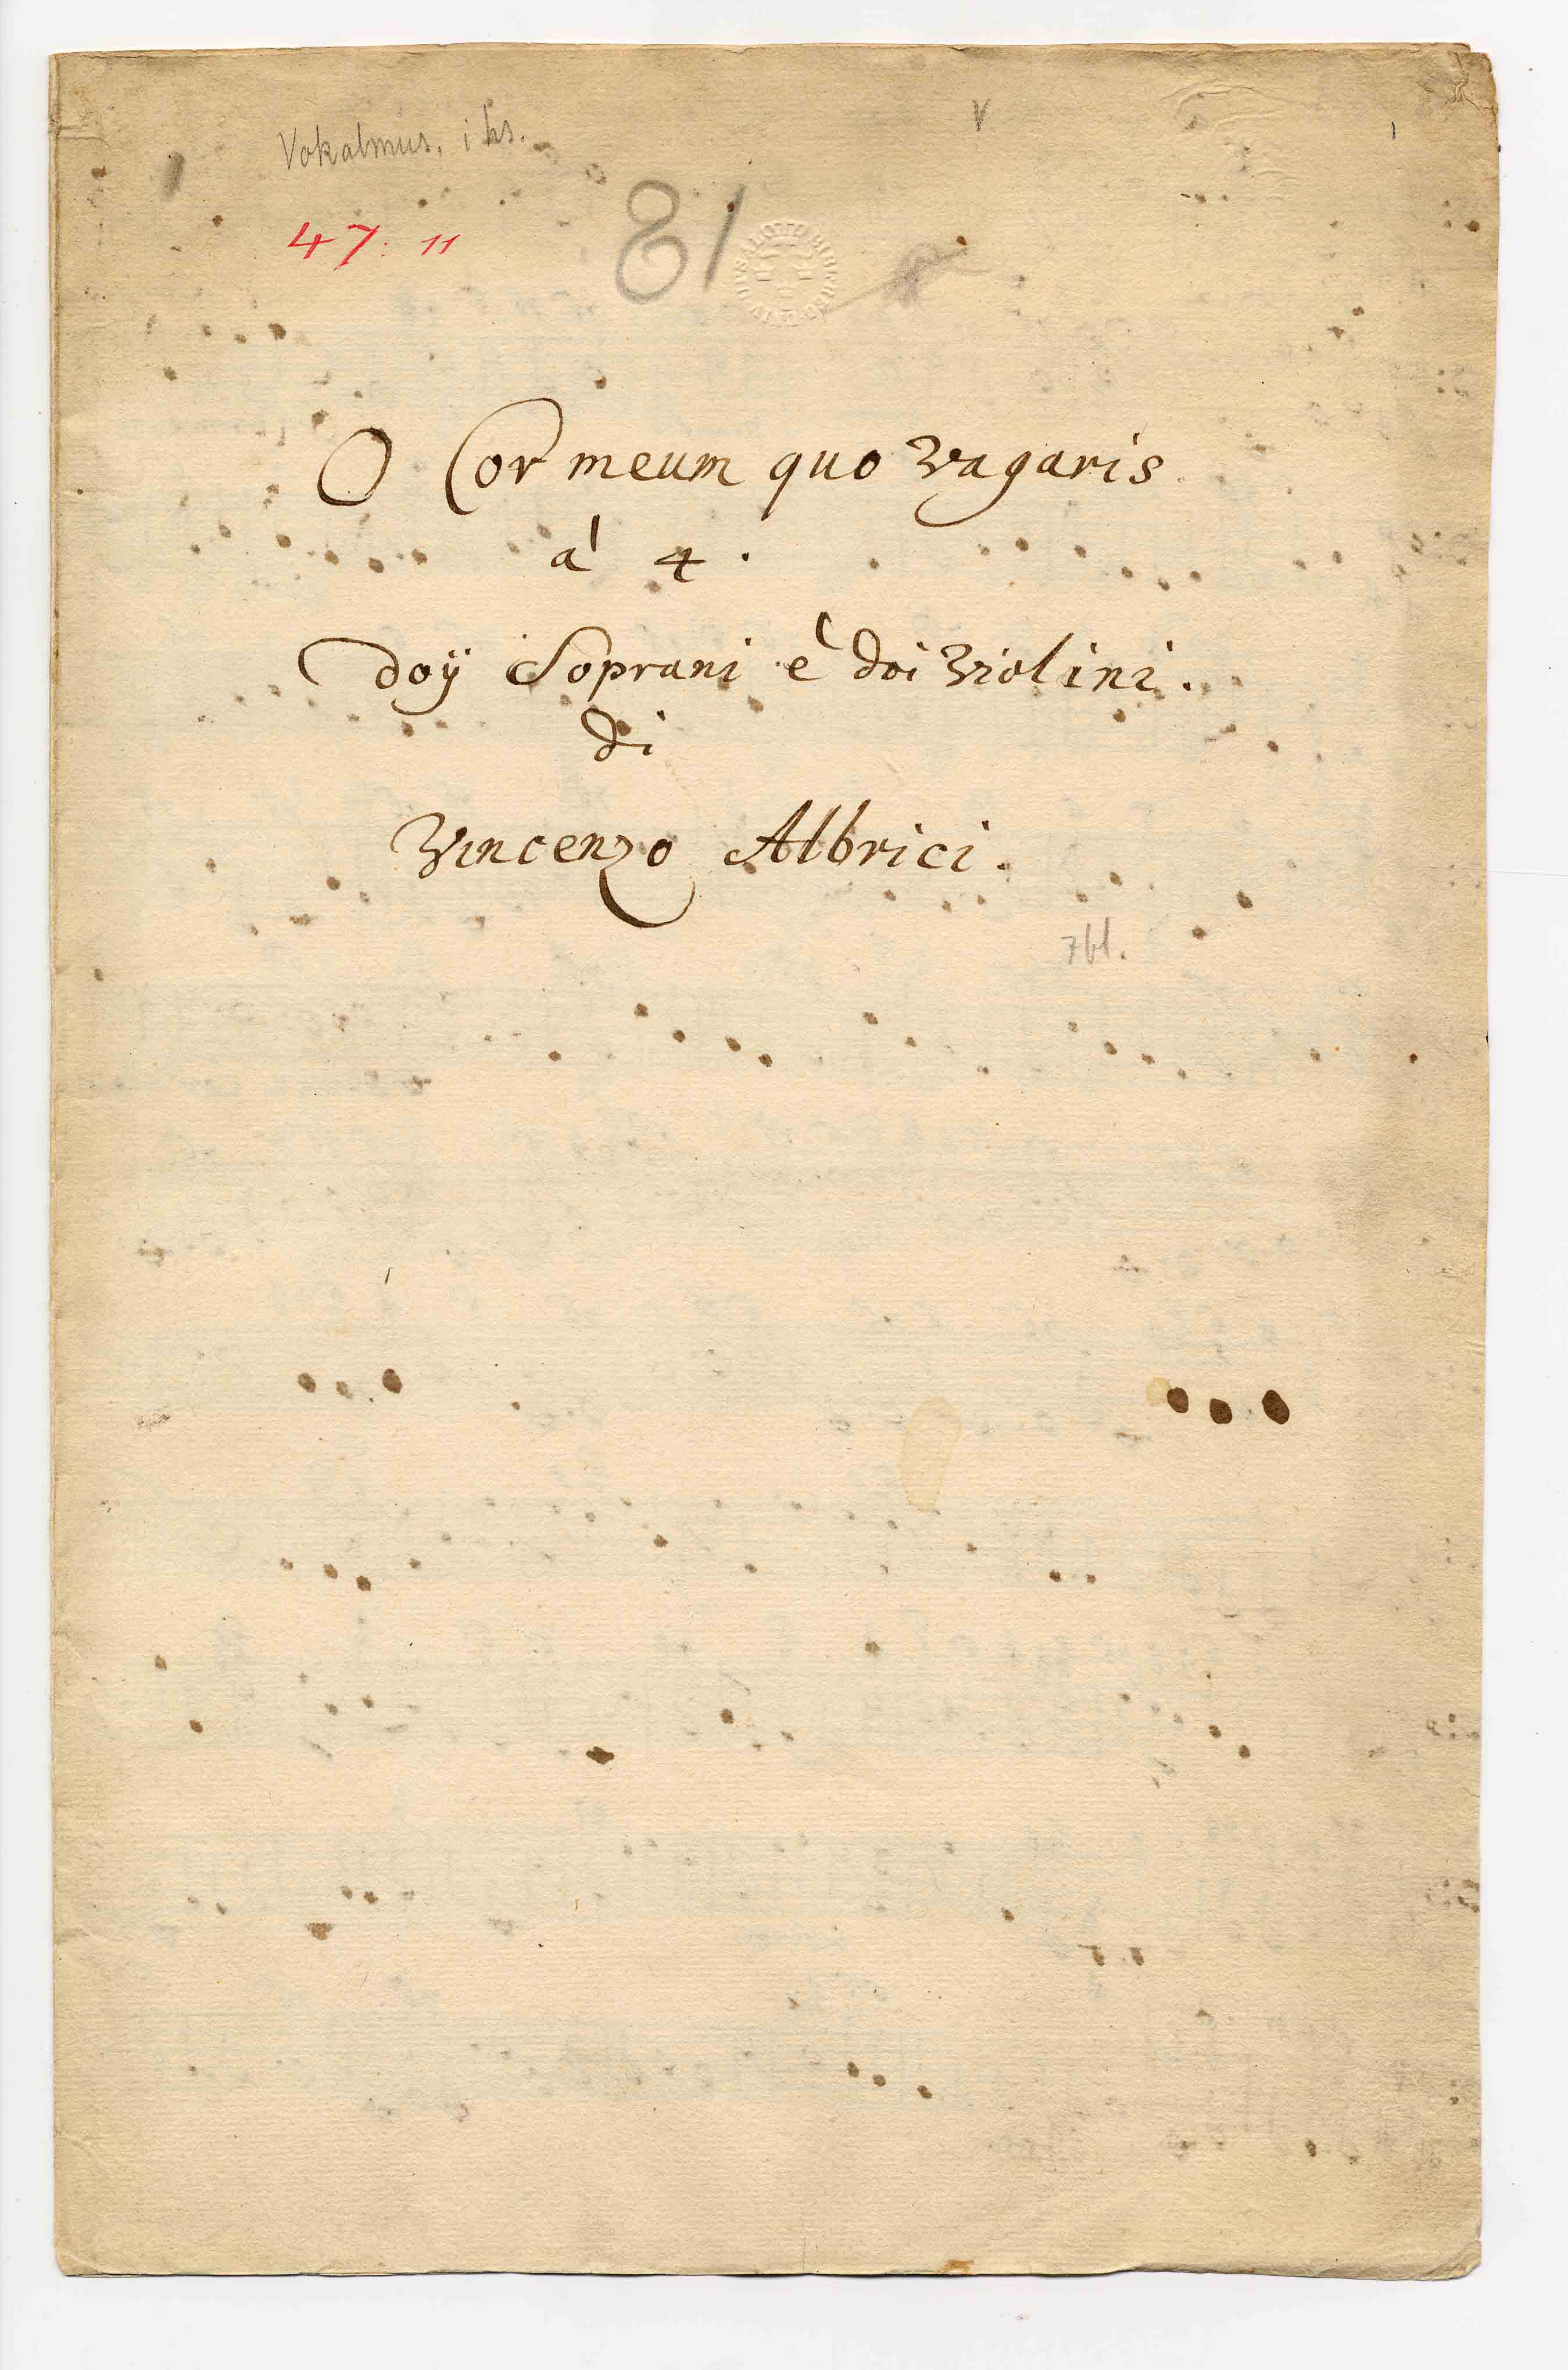 Vokalmus. i hs.
V
47: 11
81
O Cor meum quo vagaris
a' 4.
Doÿ Soprani è doi Violini.
di
Vincenzo Albrici.
7 bl.